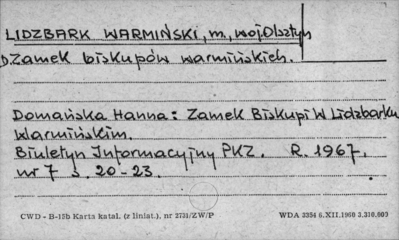 LIDZBARK WARMIŃSKI, m., woj. Olsztyn
Zamek biskupów warmińskich.
Domańska Hanna: Zamek Biskupi W Lidzbarku
Warmińskim.
Biuletyn Informacyjny PKZ. R. 1967,
nr 7 s. 20-23.
CWD - B-15b Karta katal. (z liniat.), nr 2731/ZW/P WDA 3354 6.XII.1960 3.310.003